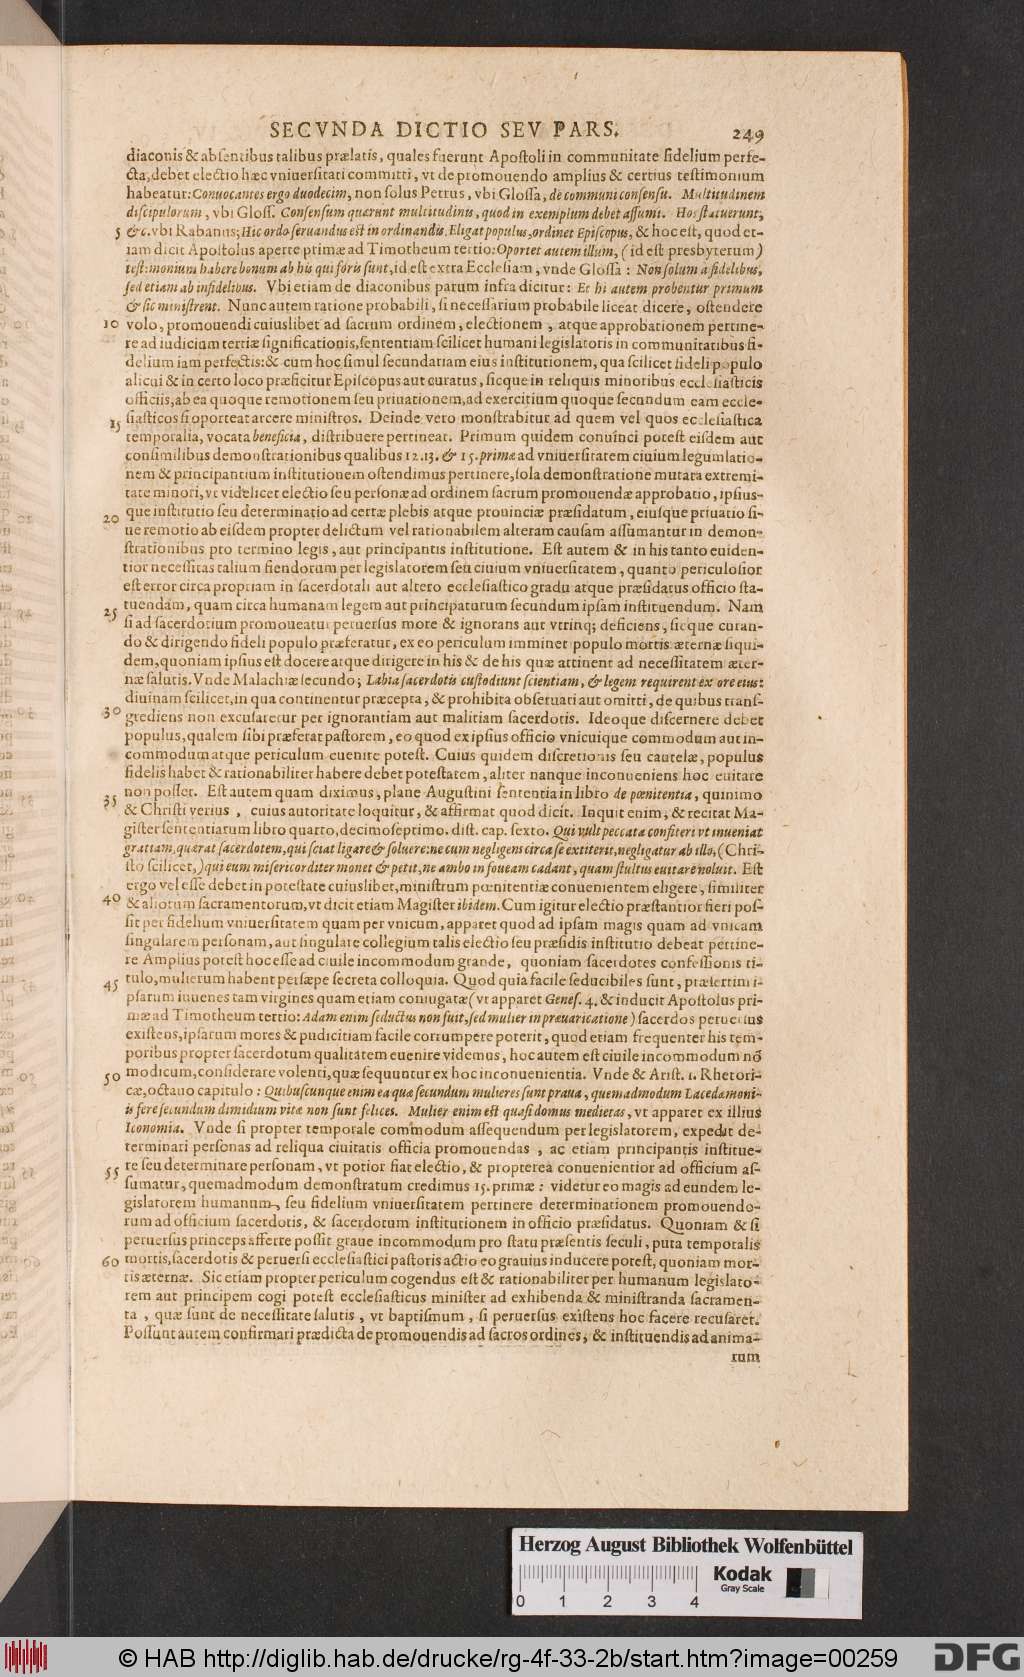 SECVNDA DICTIO SEV PARS. 249
diaconis & absentibus talibus prælatis, quales fuerunt Apostoli in communitate fidelium perfe-
cta, debet electio hæc vniuersitati committi, vt de promouendo amplius & certius testimonium
habeatur: Conuocantes ergo duodecim, non solus Petrus, vbi Glossa, de communi consensu. Multitudinem
discipulorum, vbi Gloss. Consensum quærunt multitudinis, quod in exemplum debet assumi. Hos statuerunt,
5 &c. vbi Rabanus; Hic ordo seruandus est in ordinandis. Eligat populus, ordinet Episcopus, & hoc est, quod et-
iam dicit Apostolus aperte primæ ad Timotheum tertio: Oportet autem illum, (id est presbyterum)
testimonium habere bonum ab his qui foris sunt, id est extra Ecclesiam, vnde Glossa: Non solum a fidelibus,
sed etiam ab infidelibus. Vbi etiam de diaconibus parum infra dicitur: Et hi autem probentur primum
& sic ministrent. Nunc autem ratione probabili, si necessarium probabile liceat dicere, ostendere
10 volo, promouendi cuiuslibet ad sacrum ordinem, electionem, atque approbationem pertine-
re ad iudicium tertiæ significationis, sententiam scilicet humani legislatoris in communitatibus fi-
delium iam perfectis: & cum hoc simul secundariam eius institutionem, qua scilicet fideli populo
alicui & in certo loco præficitur Episcopus aut curatus, sicque in reliquis minoribus ecclesiasticis
officiis, ab ea quoque remotionem seu priuationem, ad exercitium quoque secundum eam eccle-
15 siasticos si oporteat arcere ministros. Deinde vero monstrabitur ad quem vel quos ecclesiastica
temporalia, vocata beneficia, distribuere pertineat. Primum quidem conuinci potest eisdem aut
consimilibus demonstrationibus qualibus 12. 13. & 15. primæ ad vniuersitatem ciuium legumlatio-
nem & principantium institutionem ostendimus pertinere, sola demonstratione mutata extremi-
tate minori, vt videlicet electio seu personæ ad ordinem sacrum promouendæ approbatio, ipsius-
20 que institutio seu determinatio ad certæ plebis atque prouinciæ præsidatum, eiusque priuatio si-
ue remotio ab eisdem propter delictum vel rationabilem alteram causam assumantur in demon-
strationibus pro termino legis, aut principantis institutione. Est autem & in his tanto euiden-
tior necessitas talium fiendorum per legislatorem seu ciuium vniuersitatem, quanto periculosior
est error circa propriam in sacerdotali aut altero ecclesiastico gradu atque præsidatus officio sta-
25 tuendam, quam circa humanam legem aut principatum secundum ipsam instituendum. Nam
si ad sacerdotium promoueatur peruersus more & ignorans aut vtrinq; deficiens, sicque curan-
do & dirigendo fideli populo præferatur, ex eo periculum imminet populo mortis æternæ siqui-
dem, quoniam ipsius est docere atque dirigere in his & de his quæ attinent ad necessitatem æter-
næ salutis. Vnde Malachiæ secundo; Labia sacerdotis custodiunt scientiam, & legem requirent ex ore eius:
diuinam scilicet, in qua continentur præcepta, & prohibita obseruati aut omitti, de quibus trans-
30 grediens non excusaretur per ignorantiam aut malitiam sacerdotis. Ideoque discernere debet
populus, qualem sibi præferat pastorem, eo quod ex ipsius officio vnicuique commodum aut in-
commodum atque periculum euenire potest. Cuius quidem discretionis seu cautelæ, populus
fidelis habet & rationabiliter habere debet potestatem, aliter nanque inconueniens hoc euitare
35 non posset. Est autem quam diximus, plane Augustini sententia in libro de pœnitentia, quinimo
& Christi verius, cuius autoritate loquitur, & affirmat quod dicit. Inquit enim, & recitat Ma-
gister sententiarum libro quarto, decimoseptimo. dist. cap. sexto. Qui vult peccata confiteri vt inueniat
gratiam, quærat sacerdotem, qui sciat ligare & soluere: ne cum negligens circa se extiterit, negligatur ab illo, (Chri-
sto scilicet,) qui eum misericorditer monet & petit, ne ambo in foueam cadant, quam stultus euitare noluit. Est
ergo vel esse debet in potestate cuiuslibet, ministrum pœnitentiæ conuenientem eligere, similiter
40 & aliorum sacramentorum, vt dicit etiam Magister ibidem. Cum igitur electio præstantior fieri pos-
sit per fidelium vniuersitatem quam per vnicum, apparet quod ad ipsam magis quam ad vnicam
singularem personam, aut singulare collegium talis electio seu præsidis institutio debeat pertine-
re Amplius potest hoc esse ad ciuile incommodum grande, quoniam sacerdotes confessionis ti-
45 tulo, mulierum habent persæpe secreta colloquia. Quod quia facile seducibiles sunt, præsertim i-
psarum iuuenes tam virgines quam etiam coniugatæ (vt apparet Genes. 4. & inducit Apostolus pri-
mæ ad Timotheum tertio: Adam enim seductus non fuit, sed mulier in præuaricatione) sacerdos peruersus
existens, ipsarum mores & pudicitiam facile corrumpere poterit, quod etiam frequenter his tem-
poribus propter sacerdotum qualitatem euenire videmus, hoc autem est ciuile incommodum nõ
50 modicum, considerare volenti, quæ sequuntur ex hoc inconuenientia. Vnde & Arist. 1. Rhetori-
cæ, octauo capitulo: Quibuscunque enim ea quæ secundum mulieres sunt praua, quemadmodum Lacedæmoni-
is fere secundum dimidium vitæ non sunt felices. Mulier enim est quasi domus medietas, vt apparet ex illius
Iconomia. Vnde si propter temporale commodum assequendum per legislatorem, expedit de-
terminari personas ad reliqua ciuitatis officia promouendas, ac etiam principantis institue-
55 re seu determinare personam, vt potior fiat electio, & propterea conuenientior ad officium as-
sumatur, quemadmodum demonstratum credimus 15. primæ: videtur eo magis ad eundem le-
gislatorem humanum, seu fidelium vniuersitatem pertinere determinationem promouendo-
rum ad officium sacerdotis, & sacerdotum institutionem in officio præsidatus. Quoniam & si
peruersus princeps afferre possit graue incommodum pro statu præsentis seculi, puta temporalis
60 mortis, sacerdotis & peruersi ecclesiastici pastoris actio eo grauius inducere potest, quoniam mor-
tis æternæ. Sic etiam propter periculum cogendus est & rationabiliter per humanum legislato-
rem aut principem cogi potest ecclesiasticus minister ad exhibenda & ministranda sacramen-
ta, quæ sunt de necessitate salutis, vt baptismum, si peruersus existens hoc facere recusaret.
Possunt autem confirmari prædicta de promouendis ad sacros ordines, & instituendis ad anima-
rum
Herzog August Bibliothek Wolfenbüttel
0 1 2 3 4
Kodak
Gray Scale
© HAB http://diglib.hab.de/drucke/rg-4f-33-2b/start.htm?image=00259
DFG